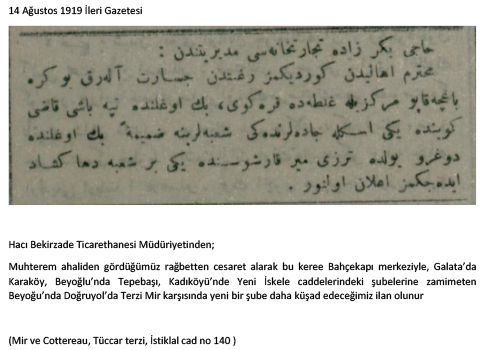 14 Ağustos 1919 İleri Gazetesi
حاجی بكر زاده تجارتخانه‌سی مدیریتندن :
محترم اهالیدن كوردیكمز رغبتدن جسارت آله‌رق بو كره
باغچه‌قاپو مركزیله غلطه‌ده قره‌كوی، بك اوغلنده تپه باشی قاضی
كوینده یكی اسكله جاده‌لرنده‌كی شعبه‌لرینه ضمیمةً بك اوغلنده
دوغرو یولده ترزی میر قارشوسنده یكی بر شعبه دها كشاد
ایده‌جكمز اعلان اولنور .
Hacı Bekirzade Ticarethanesi Müdüriyetinden;
Muhterem ahaliden gördüğümüz rağbetten cesaret alarak bu keree Bahçekapı merkeziyle, Galata’da
Karaköy, Beyoğlu’nda Tepebaşı, Kadıköyü’nde Yeni İskele caddelerindeki şubelerine zamimeten
Beyoğu’nda Doğruyol’da Terzi Mir karşısında yeni bir şube daha küşad edeceğimiz ilan olunur
(Mir ve Cottereau, Tüccar terzi, İstiklal cad no 140 )